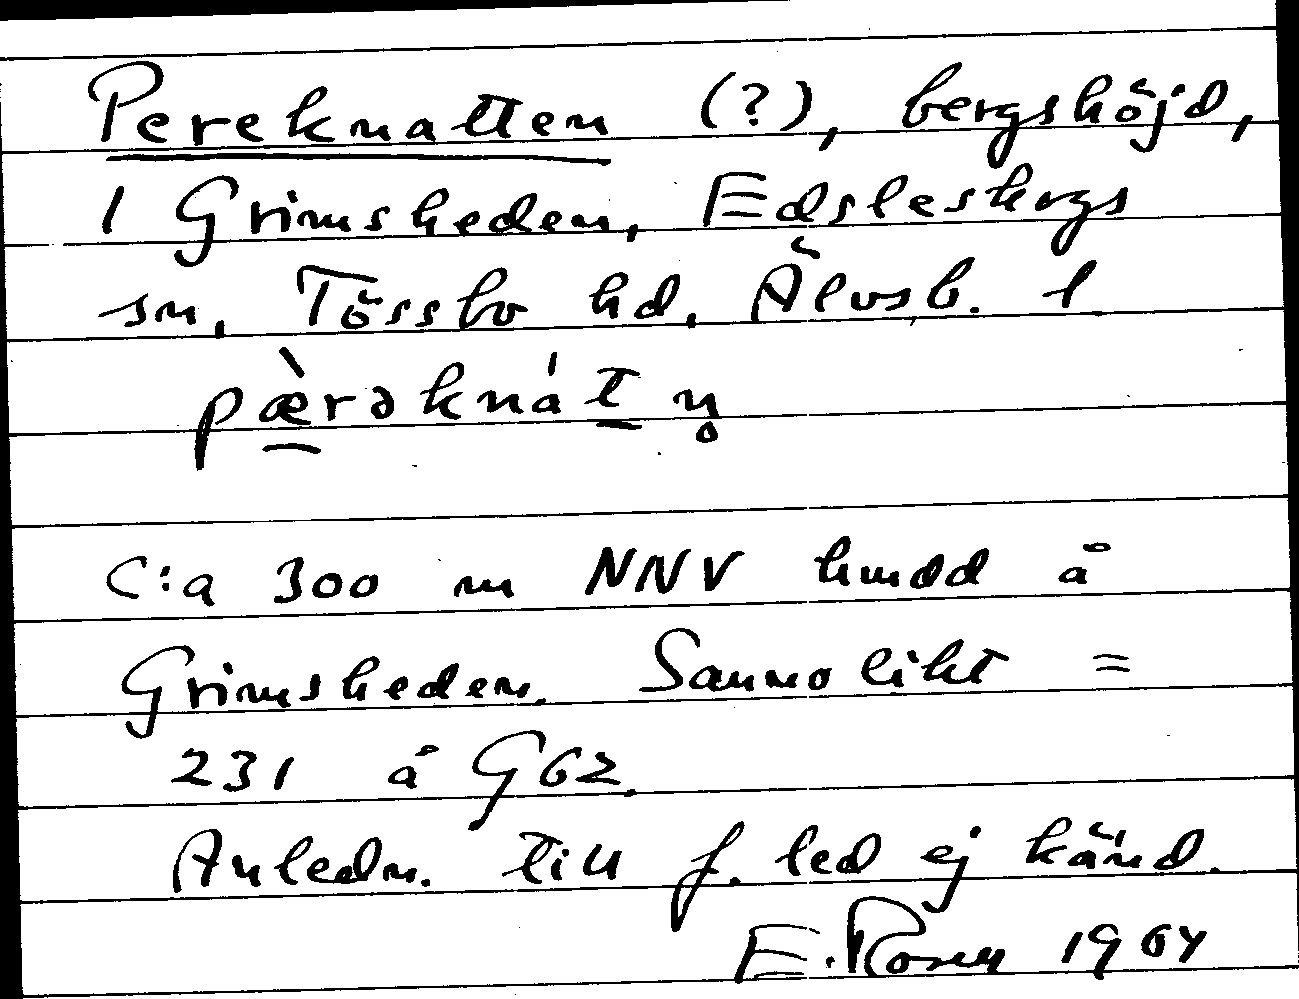 Pereknatten (?), bergshöjd,
1 Grimsheden, Edsleskogs
sn, Tössbo hd, Älvsb. l
pæ̀rəknát n̥
C:a 300 m NNV huvudd å
Grimsheden. Sannolikt =
231 å G62.
Anledn. till f. led ej känd.
E. Rosen 1964